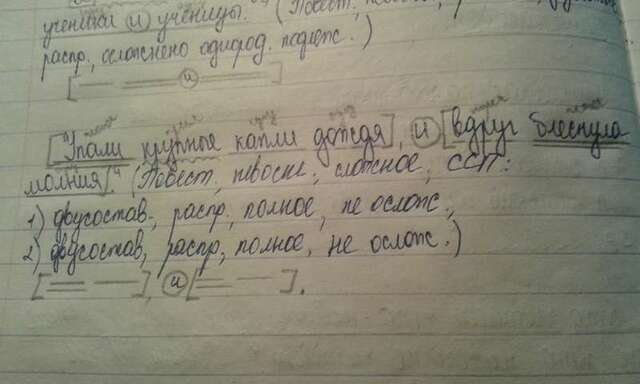 ученики и ученицы. (Повест.,
распр., осложнено однород. подлеж.)
[ и ]
[Упали крупные капли дождя], и [вдруг блеснула
молния]. (Повест., невоскл., сложное, ССП:
1) двусостав., распр., полное, не ослож.,
2) двусостав., распр., полное, не ослож.)
[ ], и [ ].